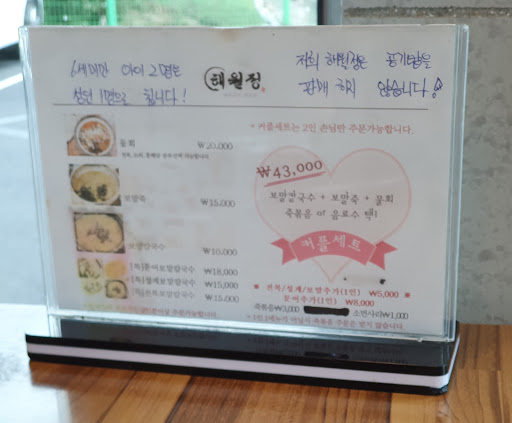 6세미만 아이 2명은
성인 1명으로 합니다!
해월정
저희 해월정은 공기밥을
판매 하지 않습니다!
* 커플세트는 2인 손님만 주문가능합니다.
물회 ₩20,000
보말죽 ₩15,000
보말칼국수 ₩10,000
[특]문어보말칼국수 ₩18,000
[특]성게보말칼국수 ₩15,000
[특]전복보말칼국수 ₩15,000
₩43,000
보말칼국수 + 보말죽 + 물회
죽볶음 or 음료수 택1
커플세트
■ 전복/성게/보말추가(1인) ₩5,000 ■
문어추가(1인) ₩8,000
죽볶음₩3,000 소면사리₩1,000